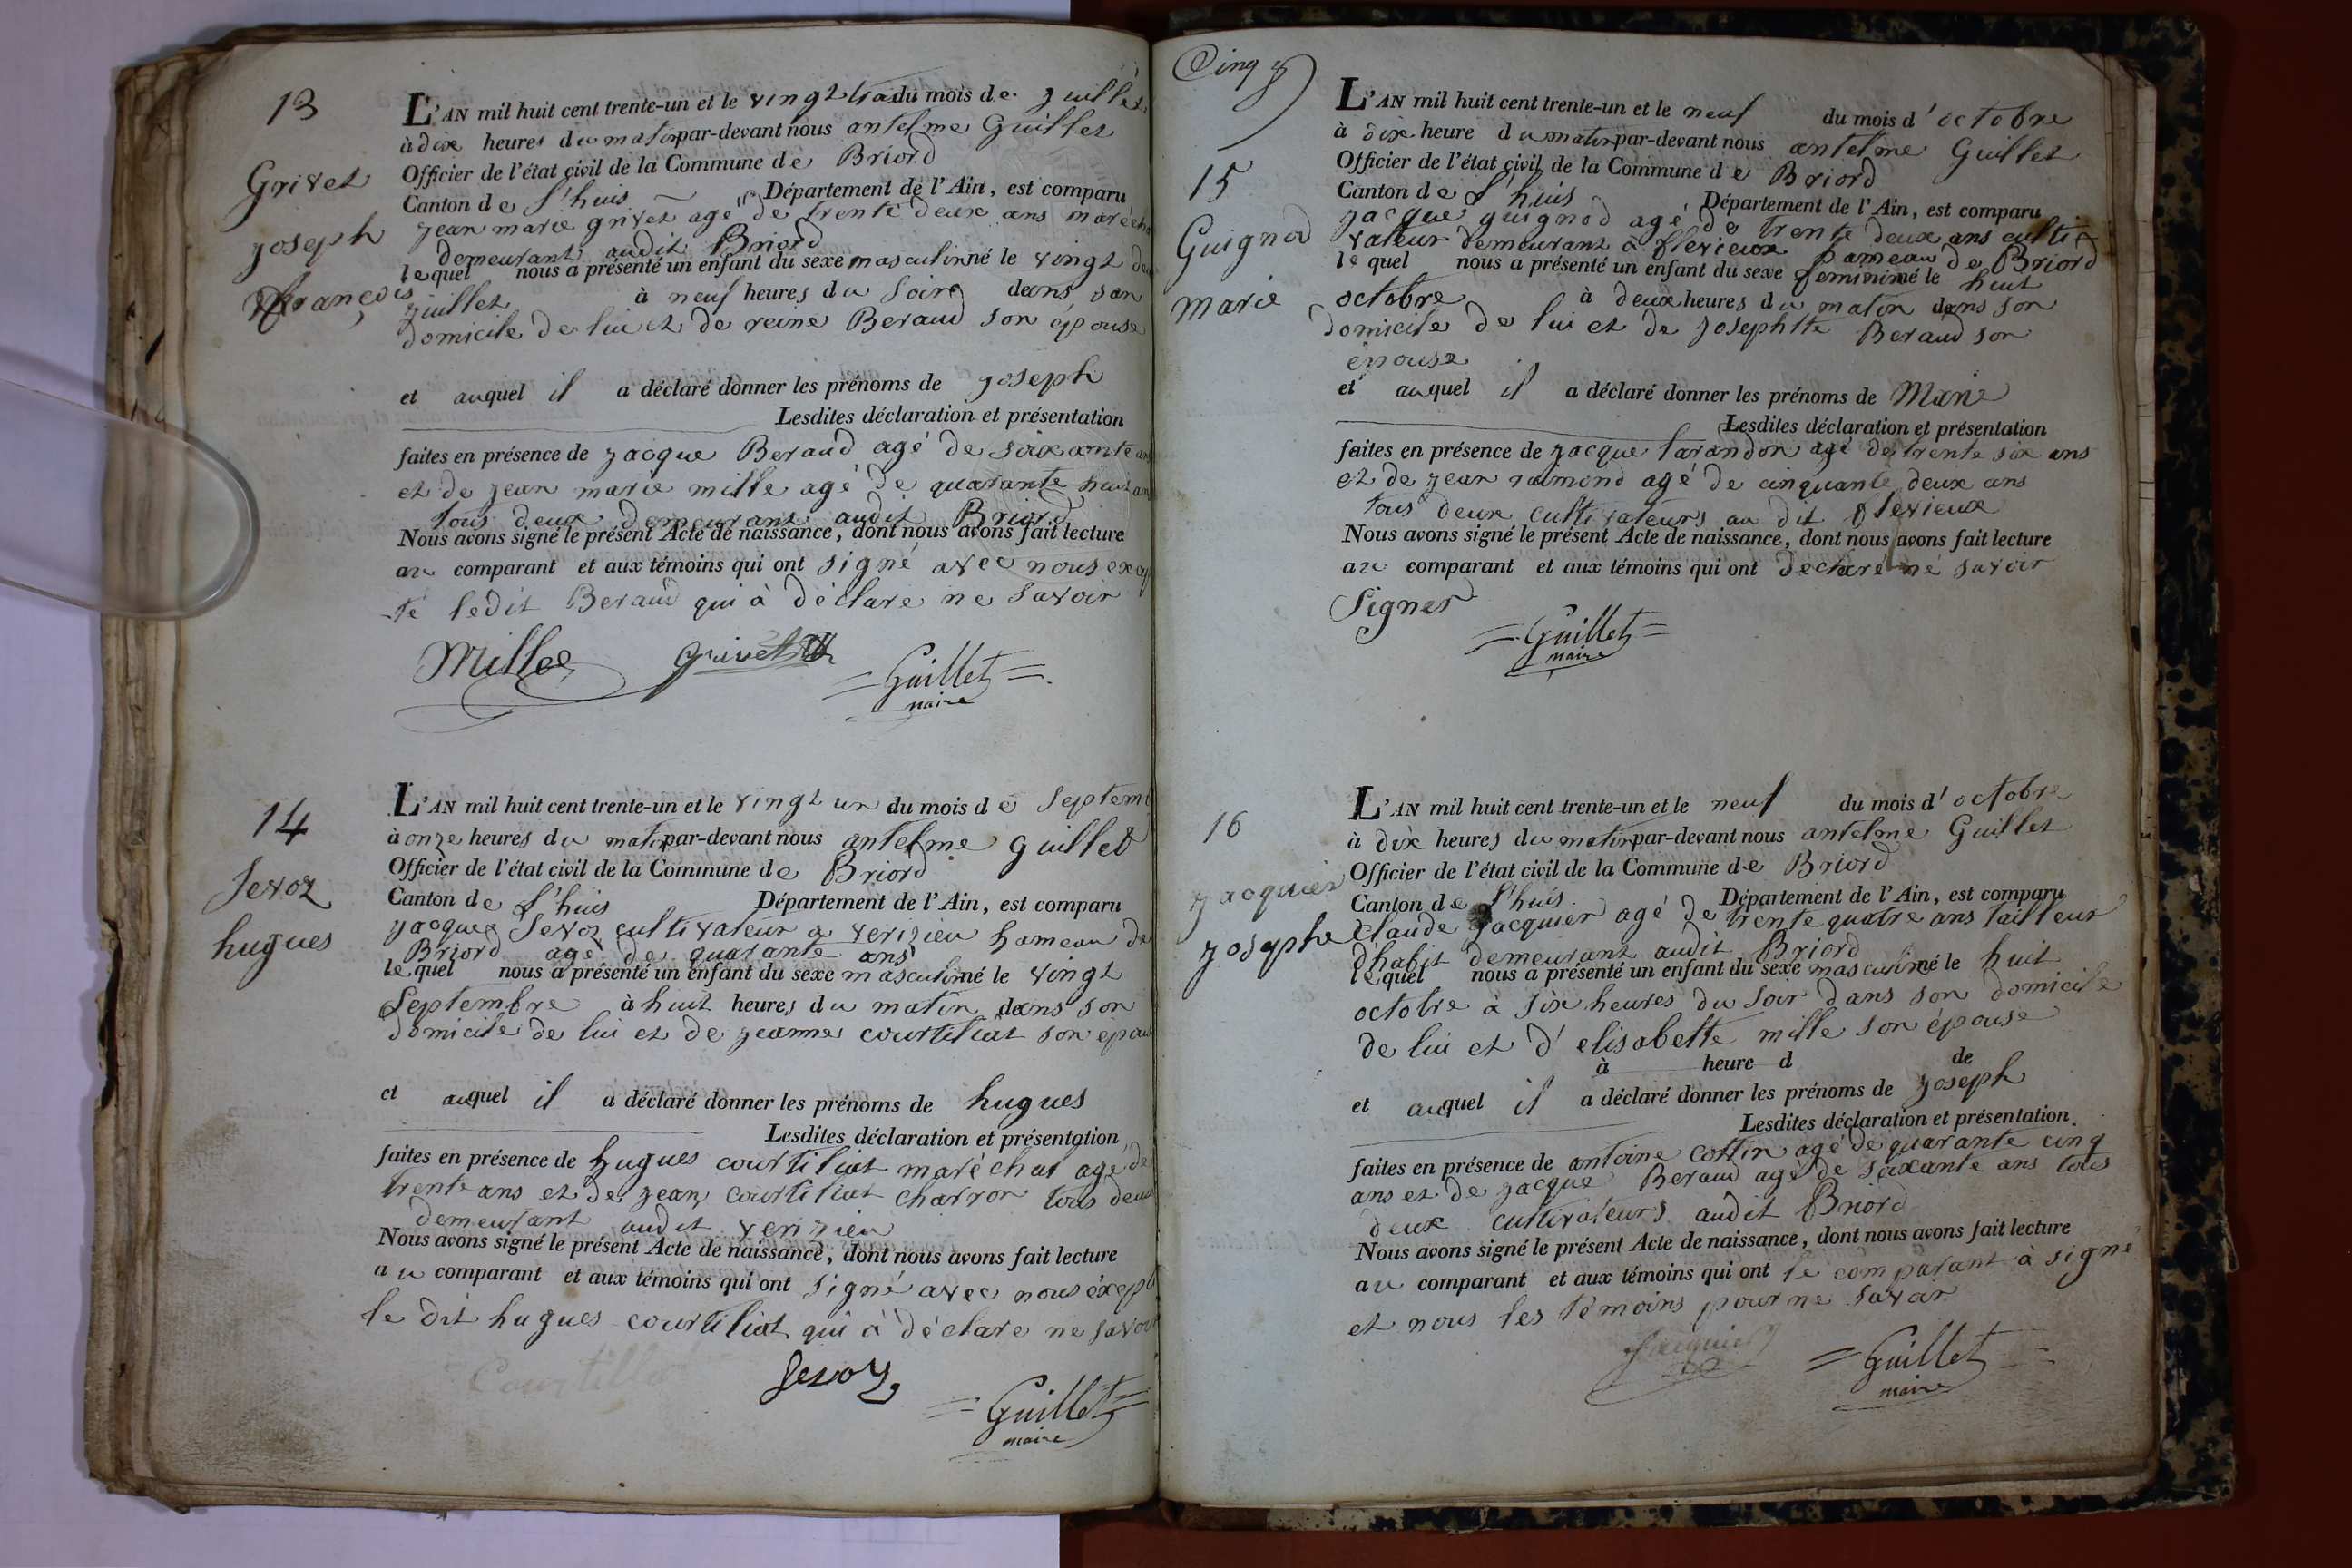 13
Grivet
joseph
françois
L'AN mil huit cent trente-un et le vingt trois du mois de juillet
à dix heures du matin par-devant nous antelme Guillet
Officier de l'état civil de la Commune de Briord
Canton de l'huis Département de l'Ain, est comparu
jean marie grivet agé de trente deux ans
demeurant audit Briord
lequel nous a présenté un enfant du sexe masculin né le vingt
juillet à neuf heures du soir dans son
domicile de lui et de reine Beraud son épouse
et auquel il a déclaré donner les prénoms de joseph
Lesdites déclaration et présentation
faites en présence de jacque Beraud agé de soixante ans
et de jean marie mille agé de quarante huit ans
tous deux demeurant audit Briord
Nous avons signé le présent Acte de naissance, dont nous avons fait lecture
au comparant et aux témoins qui ont signé avec nous excep
té ledit Beraud qui à déclare ne savoir
Mille grivet
Guillet
maire
14
Sevoz
hugues
L'AN mil huit cent trente-un et le vingt un du mois de Septem
à onze heures du matin par-devant nous antelme guillet
Officier de l'état civil de la Commune de Briord
Canton de l'huis Département de l'Ain, est comparu
jacque Sevoz cultivateur a verizieu hameau de
Briord agé de quarante ans
lequel nous a présenté un enfant du sexe masculin né le vingt
Septembre à huit heures du matin dans son
domicile de lui et de jeanne courtiliat son epou
et auquel il a déclaré donner les prénoms de hugues
Lesdites déclaration et présentation
faites en présence de hugues courtiliat maréchal agé de
trente ans et de jean courtiliat charron tous deux
demeurant audit verizieu
Nous avons signé le présent Acte de naissance, dont nous avons fait lecture
au comparant et aux témoins qui ont signé avec nous éxepté
le dit hugues courtiliat qui à déclare ne savoir
Sevoz
Guillet
maire
Cinq
15
Guignod
marie
L'AN mil huit cent trente-un et le neuf du mois d'octobre
à dix heure du matin par-devant nous antelme Guillet
Officier de l'état civil de la Commune de Briord
Canton de l'huis Département de l'Ain, est comparu
jacque guignod agé de trente deux ans culti
vateur demeurant à flevieux hameau de Briord
lequel nous a présenté un enfant du sexe feminin né le huit
octobre à deux heures du matin dans son
domicile de lui et de josephte Beraud son
épouse
et auquel il a déclaré donner les prénoms de Marie
Lesdites déclaration et présentation
faites en présence de jacque larandon agé de trente six ans
et de jean raimond agé de cinquante deux ans
tous deux cultivateurs au dit flevieux
Nous avons signé le présent Acte de naissance, dont nous avons fait lecture
au comparant et aux témoins qui ont déclaré né savoir
Signer
Guillet
maire
16
jacquier
josephe
L'AN mil huit cent trente-un et le neuf du mois d'octobre
à dix heures du matin par-devant nous antelme Guillet
Officier de l'état civil de la Commune de Briord
Canton de l'huis Département de l'Ain, est comparu
Claude jacquier agé de trente quatre ans tailleur
dhabit demeurant audit Briord
lequel nous a présenté un enfant du sexe masculin né le huit
octobre à six heures du soir dans son domicile
de lui et d'elisabette mille son épouse
à heure d de
et auquel il a déclaré donner les prénoms de joseph
Lesdites déclaration et présentation
faites en présence de antoine cottin agé de quarante cinq
ans et de jacque Beraud agé de soixante ans tous
deux cultivateurs audit Briord
Nous avons signé le présent Acte de naissance, dont nous avons fait lecture
au comparant et aux témoins qui ont le comparant à signé
et nous les témoins pour ne savoir
Jacquier
Guillet
maire